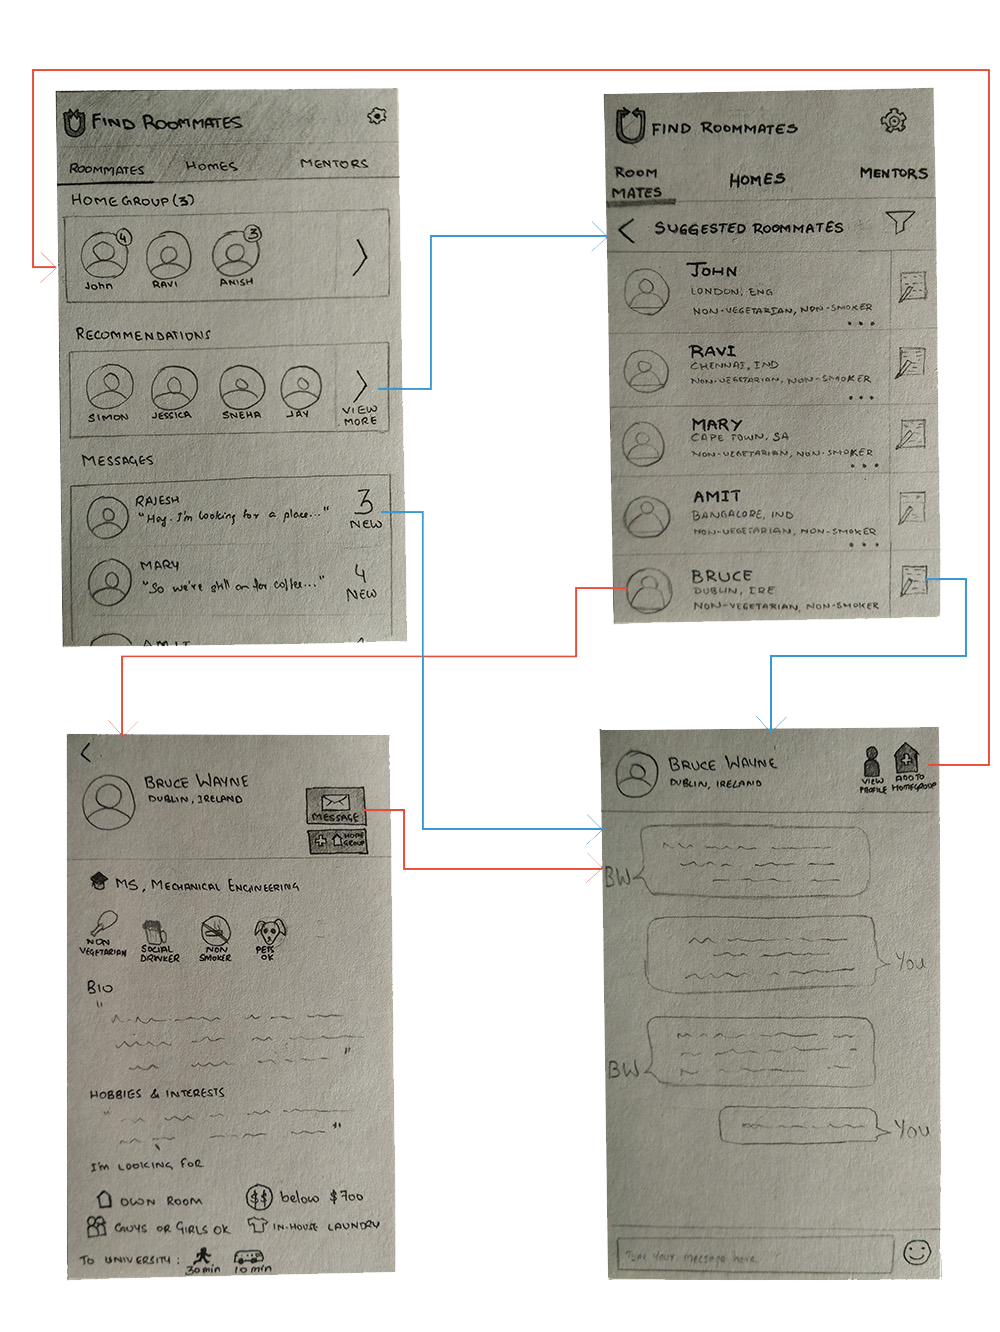 FIND ROOMMATES
ROOMMATES HOMES MENTORS
HOME GROUP (3)
4 3
John RAVI ANISH
RECOMMENDATIONS
SIMON JESSICA SNEHA JAY
VIEW
MORE
MESSAGES
RAJESH
"Hey. I'm looking for a place..."
3
NEW
MARY
"So we're still on for coffee..."
4
NEW
AMIT
FIND ROOMMATES
ROOM
MATES
HOMES
MENTORS
SUGGESTED ROOMMATES
JOHN
LONDON, ENG
NON-VEGETARIAN, NON-SMOKER
...
RAVI
CHENNAI, IND
NON-VEGETARIAN, NON-SMOKER
...
MARY
CAPE TOWN, SA
NON-VEGETARIAN, NON-SMOKER
...
AMIT
BANGALORE, IND
NON-VEGETARIAN, NON-SMOKER
...
BRUCE
DUBLIN, IRE
NON-VEGETARIAN, NON-SMOKER
BRUCE WAYNE
DUBLIN, IRELAND
MESSAGE
+ HOME
GROUP
MS, MECHANICAL ENGINEERING
NON
VEGETARIAN
SOCIAL
DRINKER
NON
SMOKER
PETS
OK
BIO
HOBBIES & INTERESTS
I'M LOOKING FOR
OWN ROOM
$$ below $700
GUYS OR GIRLS OK
IN-HOUSE LAUNDRY
TO UNIVERSITY:
30min 10min
BRUCE WAYNE
DUBLIN, IRELAND
VIEW
PROFILE
ADD TO
HOMEGROUP
BW
You
BW
You
Type your message here